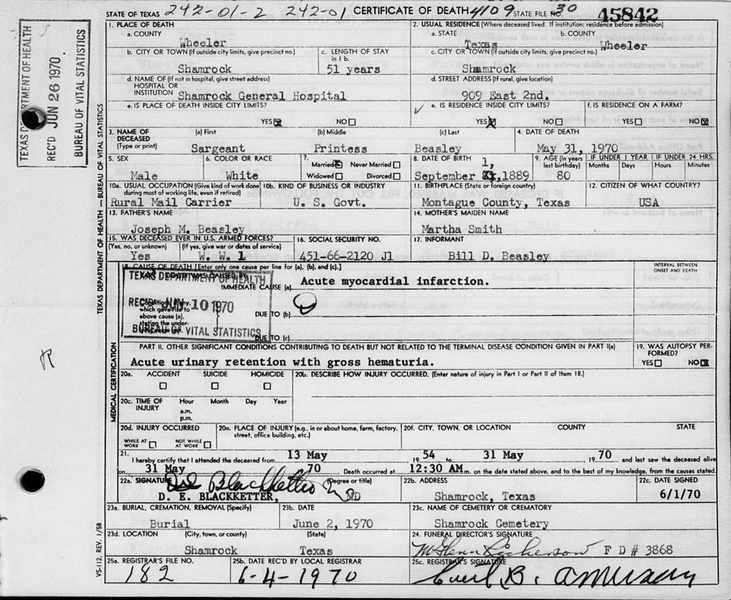 STATE OF TEXAS 242-01-2 242-01 CERTIFICATE OF DEATH 4109 STATE FILE NO. 30 45842
1. PLACE OF DEATH
a. COUNTY
Wheeler
2. USUAL RESIDENCE (Where deceased lived. If institution: residence before admission)
a. STATE
Texas
b. COUNTY
Wheeler
b. CITY OR TOWN (If outside city limits, give precinct no.)
Shamrock
c. LENGTH OF STAY in 1 b.
51 years
c. CITY OR TOWN (If outside city limits, give precinct no.)
Shamrock
d. NAME OF (If not in hospital, give street address) HOSPITAL OR INSTITUTION
Shamrock General Hospital
d. STREET ADDRESS (If rural, give location)
909 East 2nd.
e. IS PLACE OF DEATH INSIDE CITY LIMITS?
YES NO
e. IS RESIDENCE INSIDE CITY LIMITS?
YES NO
f. IS RESIDENCE ON A FARM?
YES NO
3. NAME OF DECEASED (Type or print)
(a) First
Sargeant
(b) Middle
Printess
(c) Last
Beasley
4. DATE OF DEATH
May 31, 1970
5. SEX
Male
6. COLOR OR RACE
White
7. Married Never Married
Widowed Divorced
8. DATE OF BIRTH
September 1, 1889
9. AGE (In years last birthday)
80
IF UNDER 1 YEAR
Months Days
IF UNDER 24 HRS.
Hours Min.
10a. USUAL OCCUPATION (Give kind of work done during most of working life, even if retired)
Rural Mail Carrier
10b. KIND OF BUSINESS OR INDUSTRY
U. S. Govt.
11. BIRTHPLACE (State or foreign country)
Montague County, Texas
12. CITIZEN OF WHAT COUNTRY?
USA
13. FATHER'S NAME
Joseph M. Beasley
14. MOTHER'S MAIDEN NAME
Martha Smith
15. WAS DECEASED EVER IN U.S. ARMED FORCES?
(Yes, no, or unknown) (If yes, give war or dates of service)
Yes W. W. 1
16. SOCIAL SECURITY NO.
451-66-2120 J1
17. INFORMANT
Bill D. Beasley
18. CAUSE OF DEATH [Enter only one cause per line for (a), (b), and (c).]
INTERVAL BETWEEN ONSET AND DEATH
IMMEDIATE CAUSE (a) Acute myocardial infarction.
which gave rise to above cause (a), stating the under-
DUE TO (b)
DUE TO (c)
TEXAS DEPARTMENT OF HEALTH
REC'D JUN 10 1970
BUREAU OF VITAL STATISTICS
PART II. OTHER SIGNIFICANT CONDITIONS CONTRIBUTING TO DEATH BUT NOT RELATED TO THE TERMINAL DISEASE CONDITION GIVEN IN PART I(a)
Acute urinary retention with gross hematuria.
19. WAS AUTOPSY PERFORMED?
YES NO
20a. ACCIDENT SUICIDE HOMICIDE
20b. DESCRIBE HOW INJURY OCCURRED. (Enter nature of injury in Part I or Part II of Item 18.)
20c. TIME OF INJURY
Hour Month Day Year
a.m.
p.m.
20d. INJURY OCCURRED
WHILE AT WORK NOT WHILE AT WORK
20e. PLACE OF INJURY (e.g., in or about home, farm, factory, street, office building, etc.)
20f. CITY, TOWN, OR LOCATION COUNTY STATE
21. I hereby certify that I attended the deceased from 13 May 19 54 31 May 19 70 and last saw the deceased alive
on 31 May 19 70 Death occurred at 12:30 AM m. on the date stated above, and to the best of my knowledge, from the causes stated.
22a. SIGNATURE (Degree or title)
D. E. BLACKKETTER, MD
22b. ADDRESS
Shamrock, Texas
22c. DATE SIGNED
6/1/70
23a. BURIAL, CREMATION, REMOVAL (Specify)
Burial
23b. DATE
June 2, 1970
23c. NAME OF CEMETERY OR CREMATORY
Shamrock Cemetery
23d. LOCATION (City, town, or county) (State)
Shamrock Texas
24. FUNERAL DIRECTOR'S SIGNATURE
F D # 3868
25a. REGISTRAR'S FILE NO.
182
25b. DATE REC'D BY LOCAL REGISTRAR
6-4-1970
25c. REGISTRAR'S SIGNATURE
TEXAS DEPARTMENT OF HEALTH
REC'D JUN 26 1970
BUREAU OF VITAL STATISTICS
TEXAS DEPARTMENT OF HEALTH — BUREAU OF VITAL STATISTICS
MEDICAL CERTIFICATION
VS-112, REV. 1/58
R